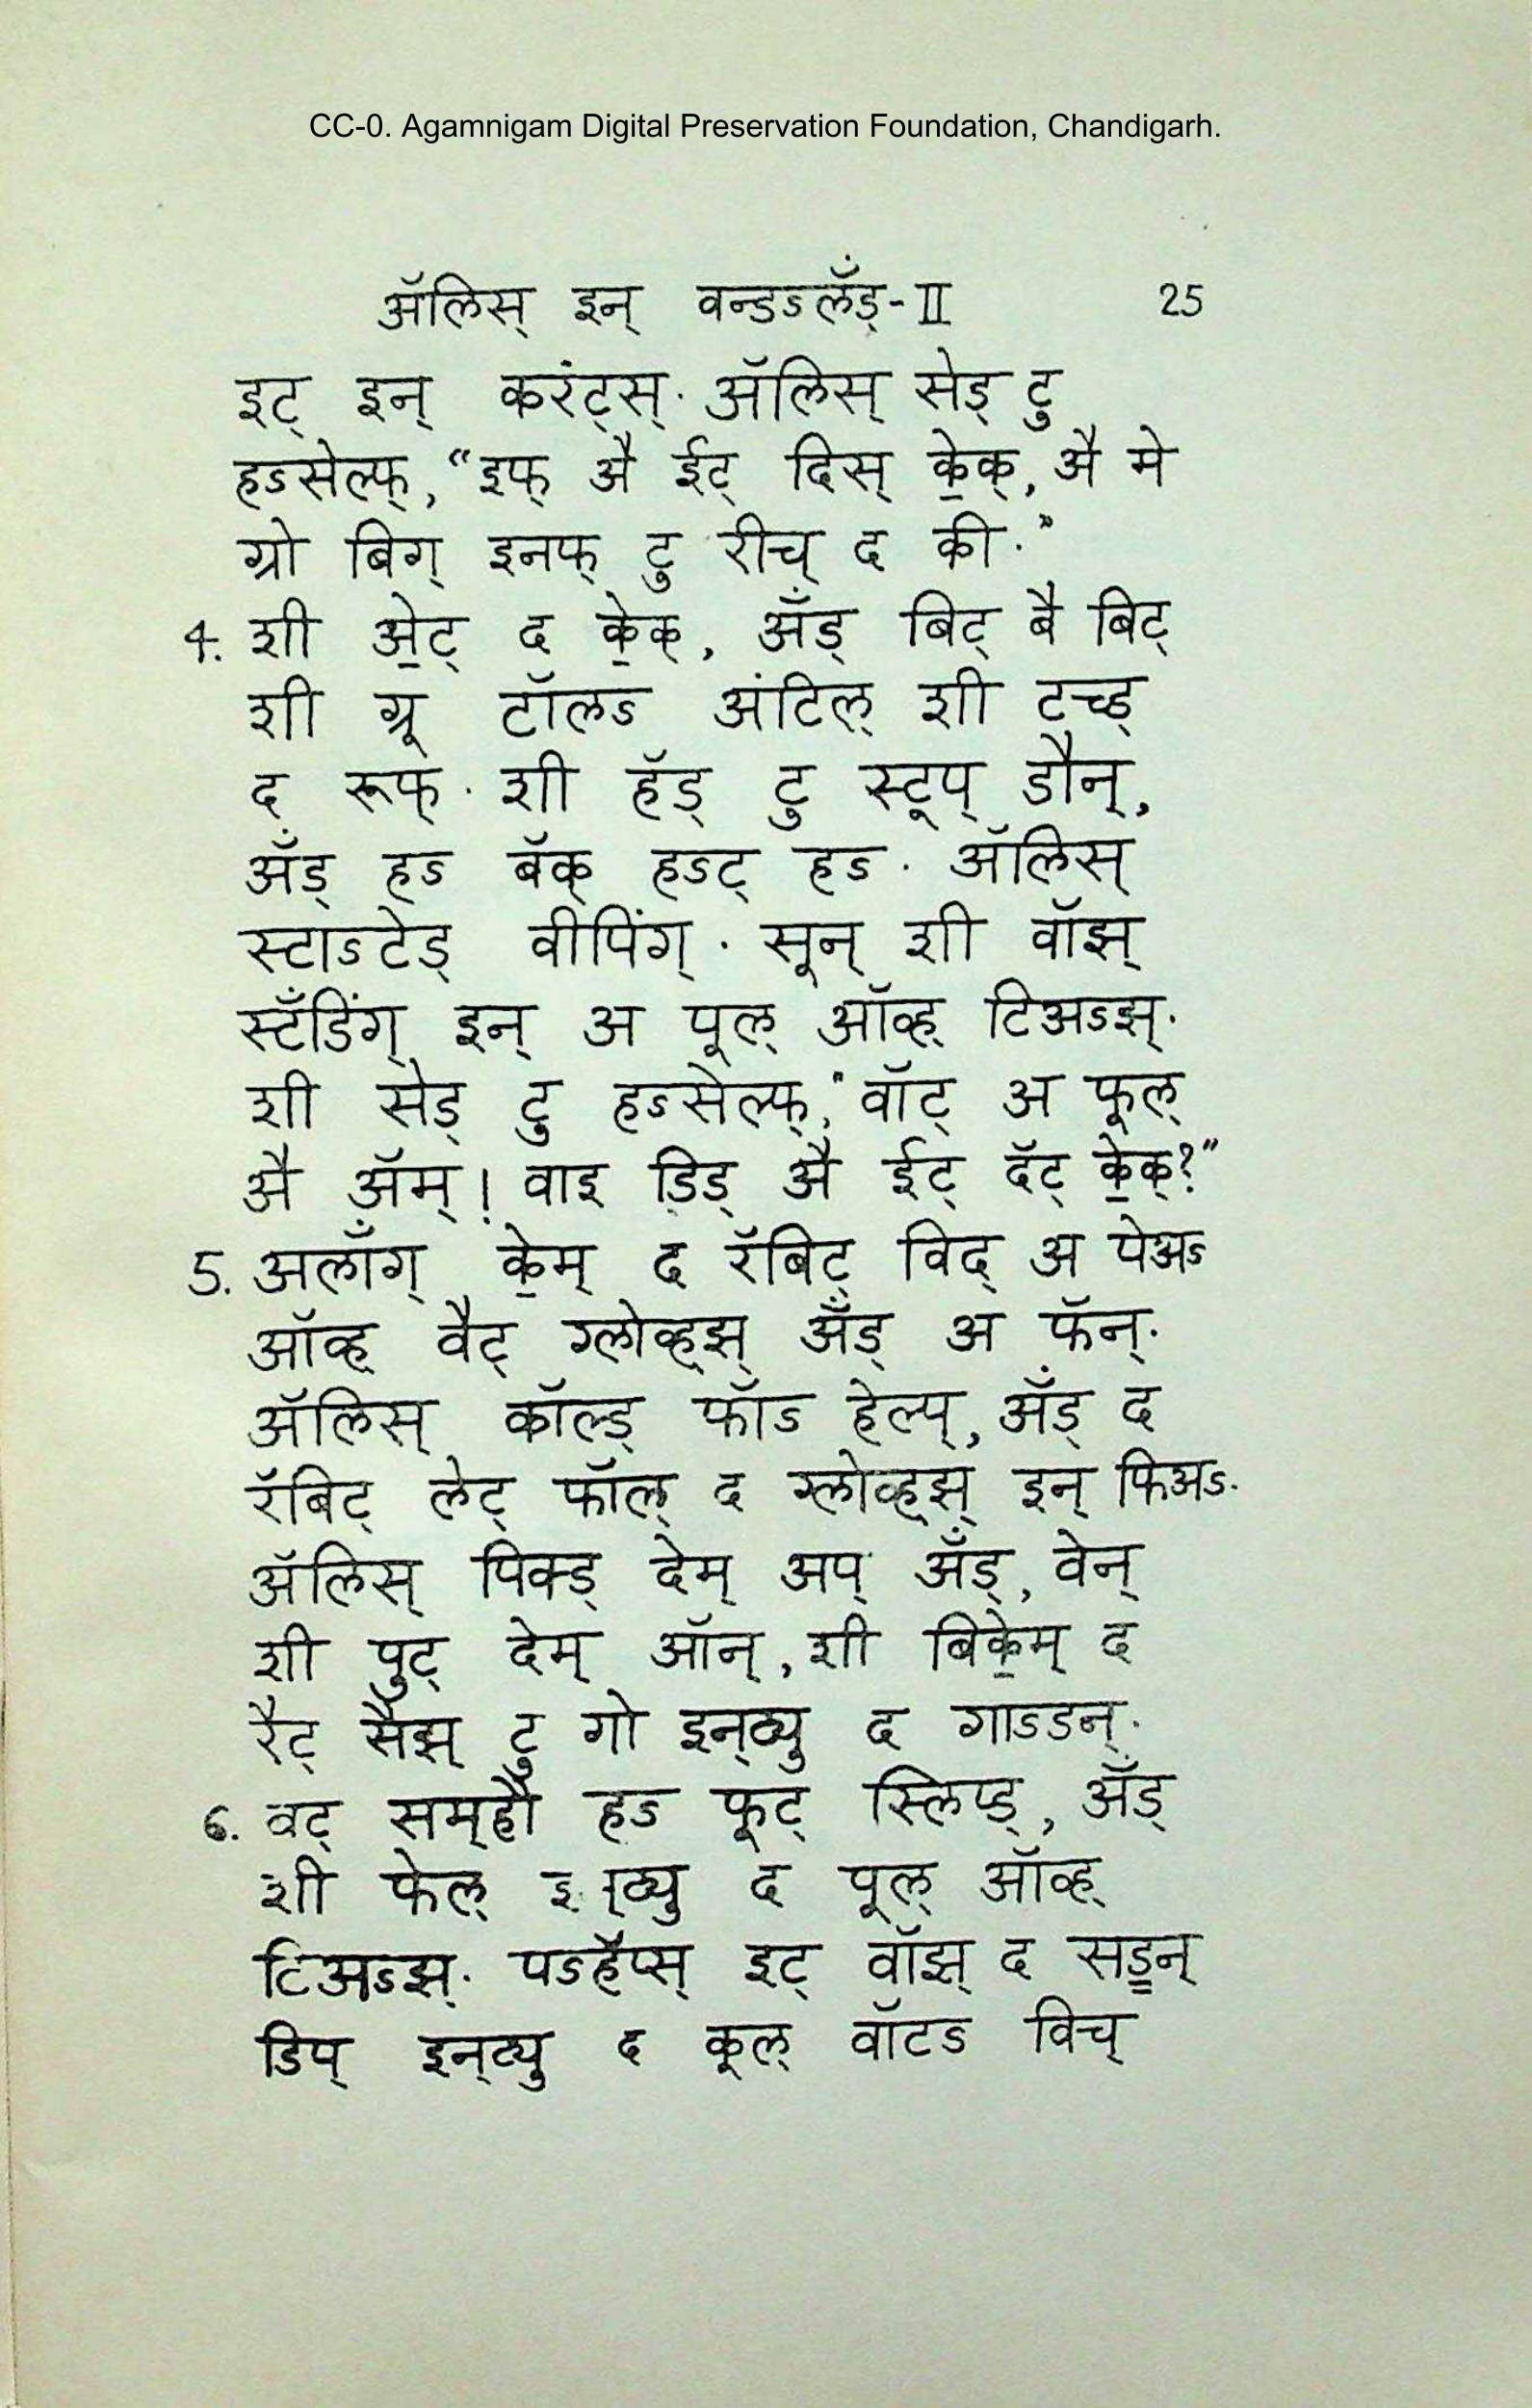 CC-0. Agamnigam Digital Preservation Foundation, Chandigarh.
ॲलिस् इन् वन्डऽलॅंड्-II 25
इट् इन् करंट्स्. ॲलिस् सेड् टु
हऽसेल्फ्, “इफ् अै ईट् दिस् के॒क्, अै मे
ग्रो बिग् इनफ् टु रीच् द की.”
4. शी अे॒ट् द के॒क्, ॲंड् बिट् बै बिट्
शी ग्रू टॉलऽ अंटिल् शी टच्ड्
द रूफ्. शी हॅड् टु स्टूप् डौन्,
ॲंड् हऽ बॅक् हऽट् हऽ. ॲलिस्
स्टाऽटेड् वीपिंग्. सून् शी वॉझ्
स्टॅंडिंग् इन् अ पूल् ऑव्ह् टिअऽझ्.
शी सेड् टु हऽसेल्फ्, "वॉट् अ फूल्
अै ॲम्! वाइ डिड् अै ईट् दॅट् के॒क्?”
5. अलॉंग् के॒म् द रॅबिट् विद् अ पेअऽ
ऑव्ह् वैट् ग्लोव्ह्झ् ॲंड् अ फॅन्.
ॲलिस् कॉल्ड् फॉऽ हेल्प्, ॲंड् द
रॅबिट् लेट् फॉल् द ग्लोव्ह्झ् इन् फिअऽ.
ॲलिस् पिक्ड् देम् अप् ॲंड्, वेन्
शी पुट् देम् ऑन्, शी बिके॒म् द
रैट् सैझ् टु गो इन्ट्यु द गाऽडन्.
6. बट् सम्हौ हऽ फूट् स्लिप्ड्, ॲंड्
शी फेल् इन्ट्यु द पूल् ऑव्ह्
टिअऽझ्. पऽहॅप्स् इट् वॉझ् द सड॒न्
डिप् इन्ट्यु द कूल् वॉटऽ विच्